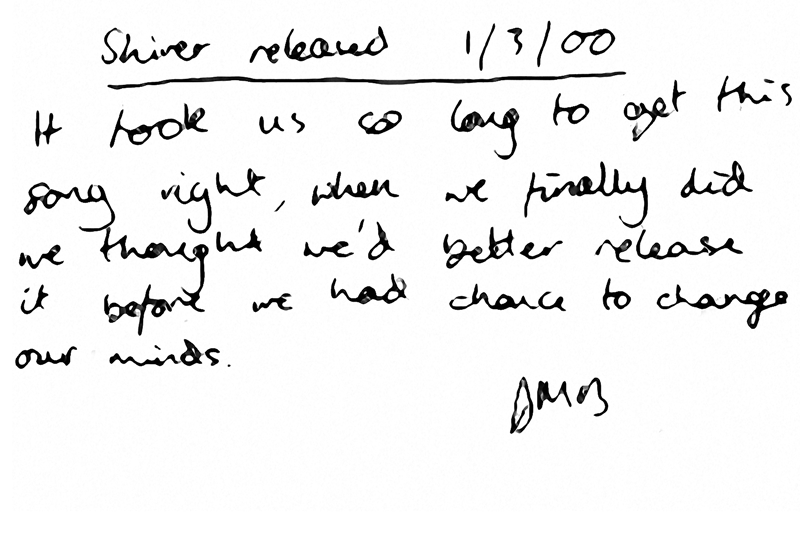 Shiver released 1/3/00
It took us so long to get this
song right, when we finally did
we thought we'd better release
it before we had chance to change
our minds.